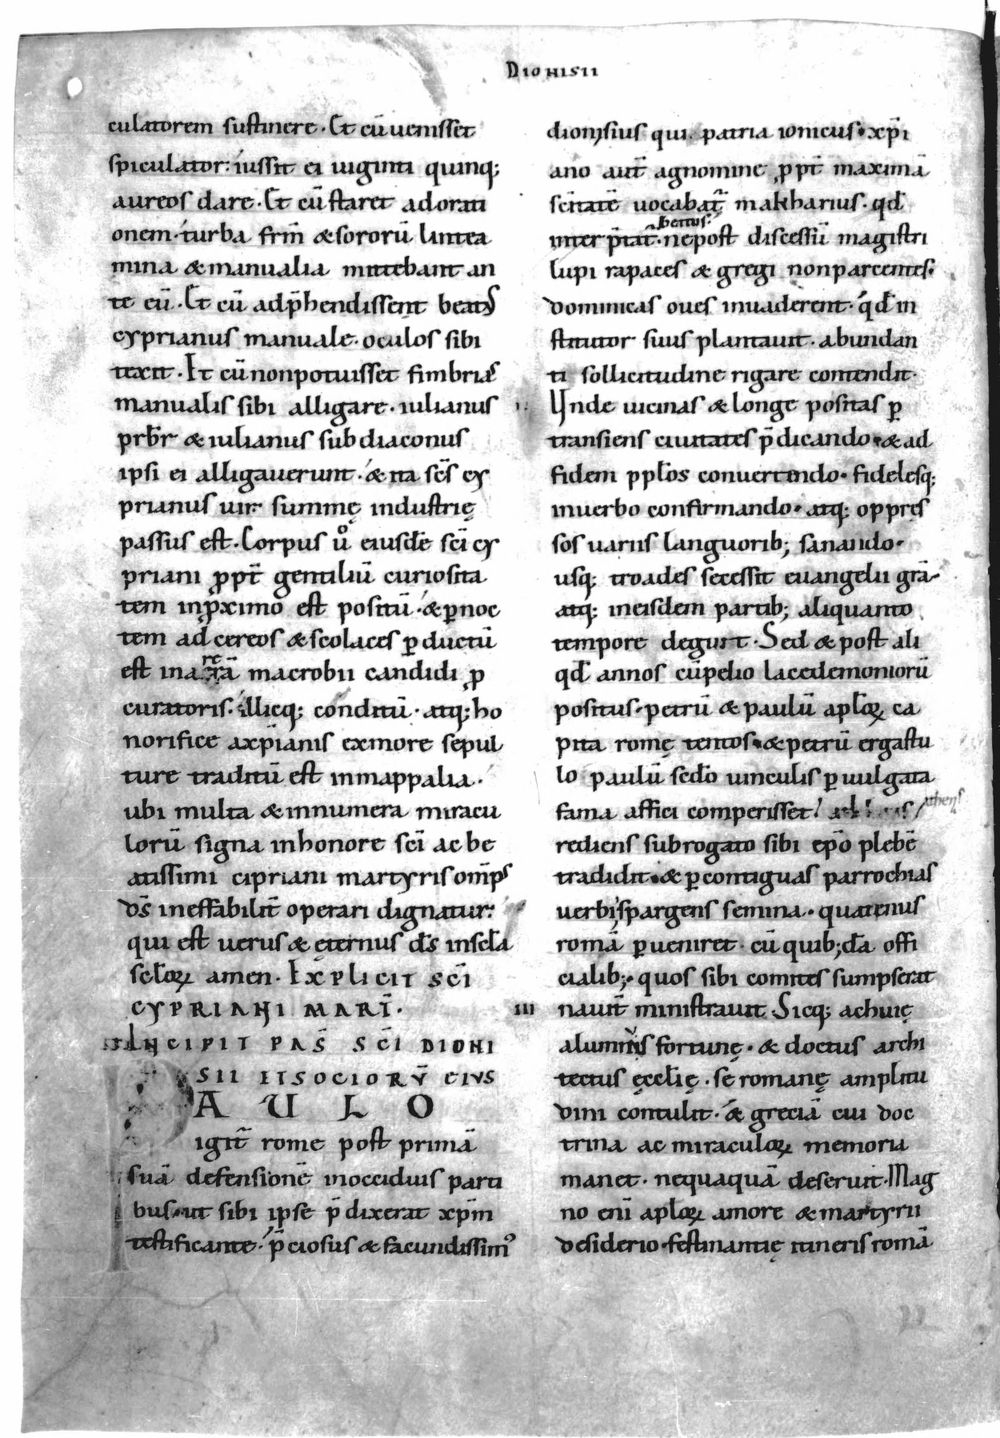 Dionisii
culatorem sustinere. Et cū uenisset
spiculator: iussit ei uiginti quinq;
aureos dare. Et cū staret ad orati
onem. turba frm̄ & sororū lintea
mina & manualia mittebant an
te eū. Et cū adp̄hendissent beatꝰ
cyprianus manuale. oculos sibi
texit. Et cū non potuisset fimbrias
manualis sibi alligare. iulianus
prb̄r & iulianus subdiaconus
ipsi ei alligauerunt. & ita sc̄s cy
prianus uir summę industrię
passus est. Corpus ū eiusdē sc̄i cy
priani ꝓpt̄ gentiliū curiosita
tem inꝓximo est positū. & ꝑ noc
tem ad cereos & scolaces ꝑductū
est in area macrobii candidi ꝓ
curatoris. illicq; conditū. atq; ho
norifice a xp̄ianis ex more sepul
ture traditū est in mappalia.
ubi multa & innumera miracu
lorū signa in honore sc̄i ac be
atissimi cipriani martyris om̄ps
ds̄ ineffabilit̄ operari dignatur.
qui est uerus & ęternus ds̄ in scl̄a
scl̄oꝝ amen. Explicit sc̄i
cypriani mart̄.
Incipit pas̄ sc̄i dioni
sii et sociorū eius
PAULO
igit̄ rome post primā
suā defensionē in occiduis parti
bus. ut sibi ipse p̄dixerat xp̄m
testificante. p̄ciosus & facundissimꝰ
dionysius qui patria ionicus. xp̄i
ano aut̄ agnomine ꝓpt̄ maximā
sc̄itatē uocabat̄ makharius. qd̄
inter p̄tat̄ beatus. ne post discessū magistri
lupi rapaces & gregi non parcentes.
dominicas oues inuaderent. qd̄ in
stitutor suus plantauit. abundan
ti sollicitudine rigare contendit.
Unde uicinas & longe positas ꝑ
transiens ciuitates p̄dicando. & ad
fidem ppl̄os conuertendo. fidelesq;
in uerbo confirmando. atq; oppres
sos uariis languorib; sanando.
usq; troades secessit euangelii grā.
atq; in eisdem partib; aliquanto
tempore degunt. Sed & post ali
qd̄ annos cū pelio lacedemoniorū
positus. petrū & paulū apl̄oꝝ ca
pita romę tentos. & petrū ergastu
lo paulū sed̄o uinculis ꝑ uulgata
fama affici comperisset. athenis
rediens subrogato sibi ep̄o plebē
tradidit. & ꝑ contiguas parrochias
uerbi spargens semina. quatenus
romā ꝑueniret. cū quib;dā offi
cialib;. quos sibi comites sumpserat
III nauit̄ ministrauit. Sicq; ac huic
alumnus fortunę. & doctus archi
tectus ęccl̄ię. se romanę amplitu
dini contulit. & greciā cui doc
trina ac miraculoꝝ memoria
manet. nequaquā deseruit. Mag
no eni apl̄oꝝ amore & martyrii
desiderio. festinantię itineris romā